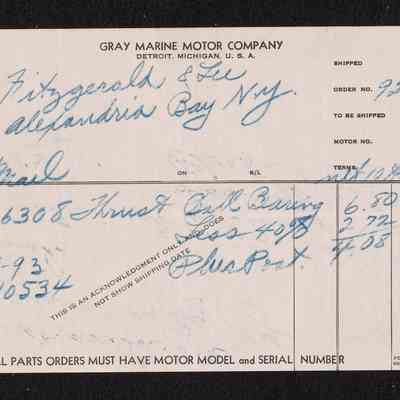 GRAY MARINE MOTOR COMPANY
DETROIT, MICHIGAN, U. S. A.
SHIPPED
Fitzgerald & Lee
ORDER NO. 92
Alexandria Bay N.Y.
TO BE SHIPPED
MOTOR NO.
ON R/L
TERMS
6308 Thrust Ball Baring 6.80
Less 40% 2.72
Plus Post. 4.08
-93
0534
THIS IS AN ACKNOWLEDGMENT ONLY AND DOES
NOT SHOW SHIPPING DATE
L PARTS ORDERS MUST HAVE MOTOR MODEL and SERIAL NUMBER